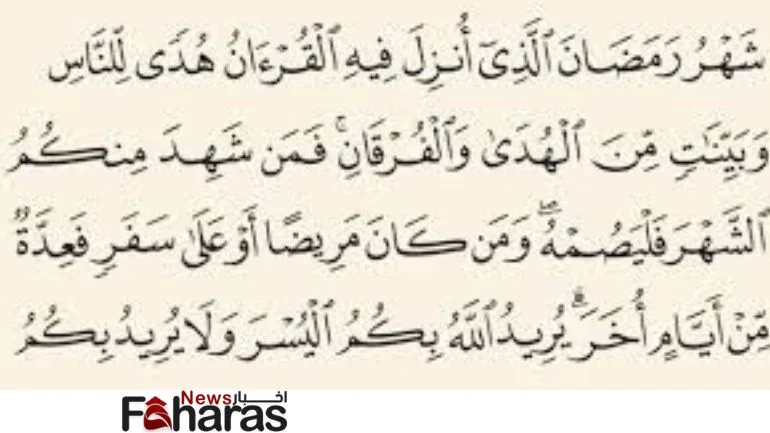 شَهْرُ رَمَضَانَ ٱلَّذِىٓ أُنزِلَ فِيهِ ٱلْقُرْءَانُ هُدًى لِّلنَّاسِ
وَبَيِّنَٰتٍ مِّنَ ٱلْهُدَىٰ وَٱلْفُرْقَانِ ۚ فَمَن شَهِدَ مِنكُمُ
ٱلشَّهْرَ فَلْيَصُمْهُ ۖ وَمَن كَانَ مَرِيضًا أَوْ عَلَىٰ سَفَرٍ فَعِدَّةٌ
مِّنْ أَيَّامٍ أُخَرَ ۗ يُرِيدُ ٱللَّهُ بِكُمُ ٱلْيُسْرَ وَلَا يُرِيدُ بِكُمُ
News اخبار
Faharas